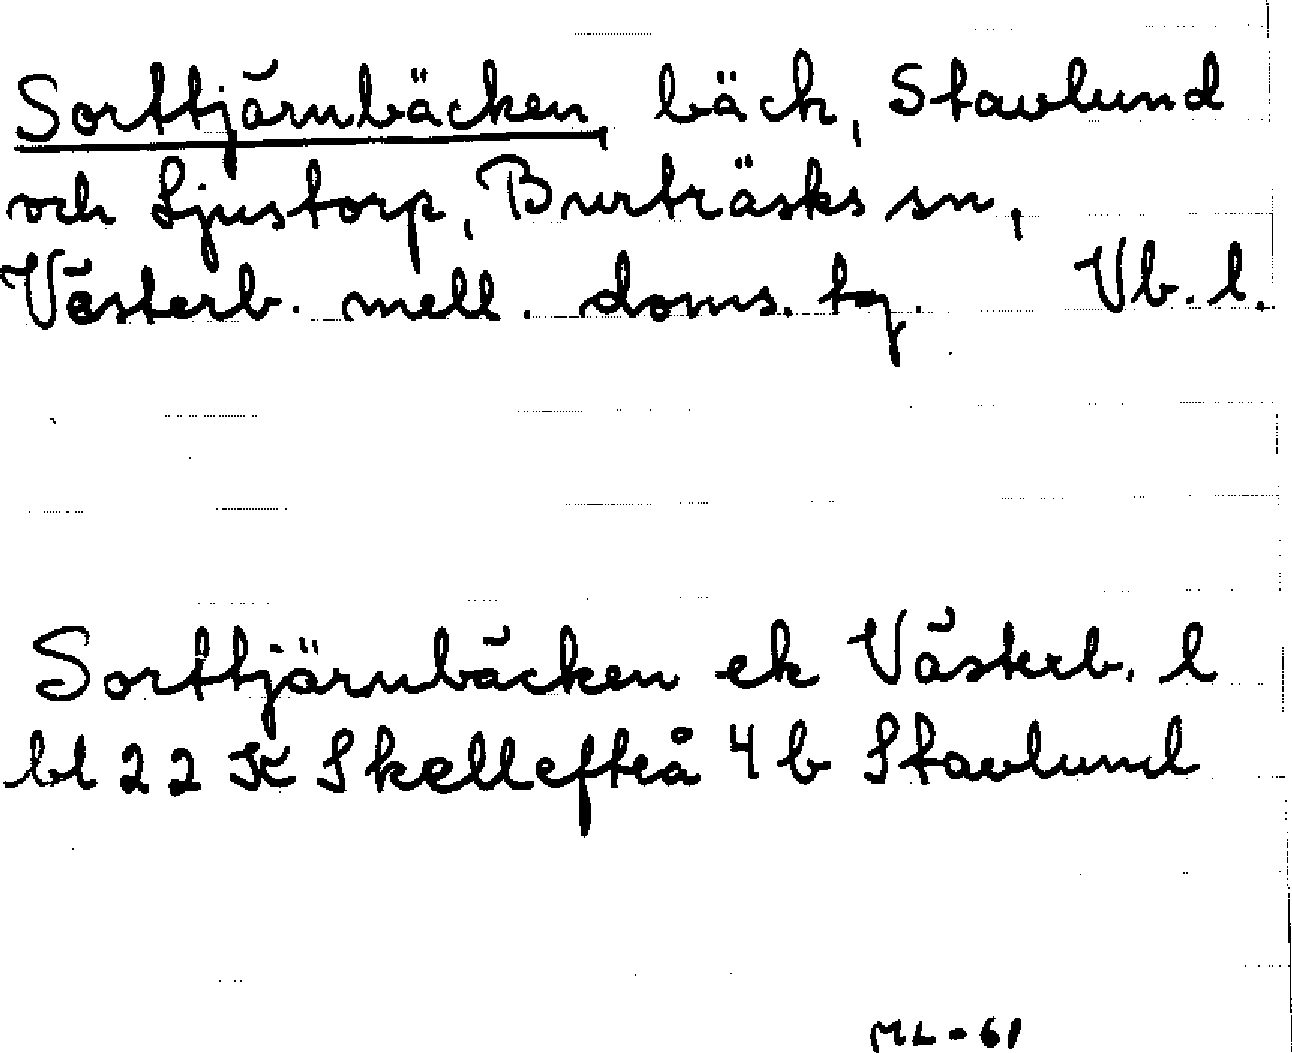 Sorttjärnbäcken, bäck, Stavlund
och Ljustorp, Burträsks sn,
Västerb. mell. doms. tg. Vb. l.
Sorttjärnbäcken ek Västerb. l
bl 22 K Skellefteå 4 b Stavlund
ML - 61